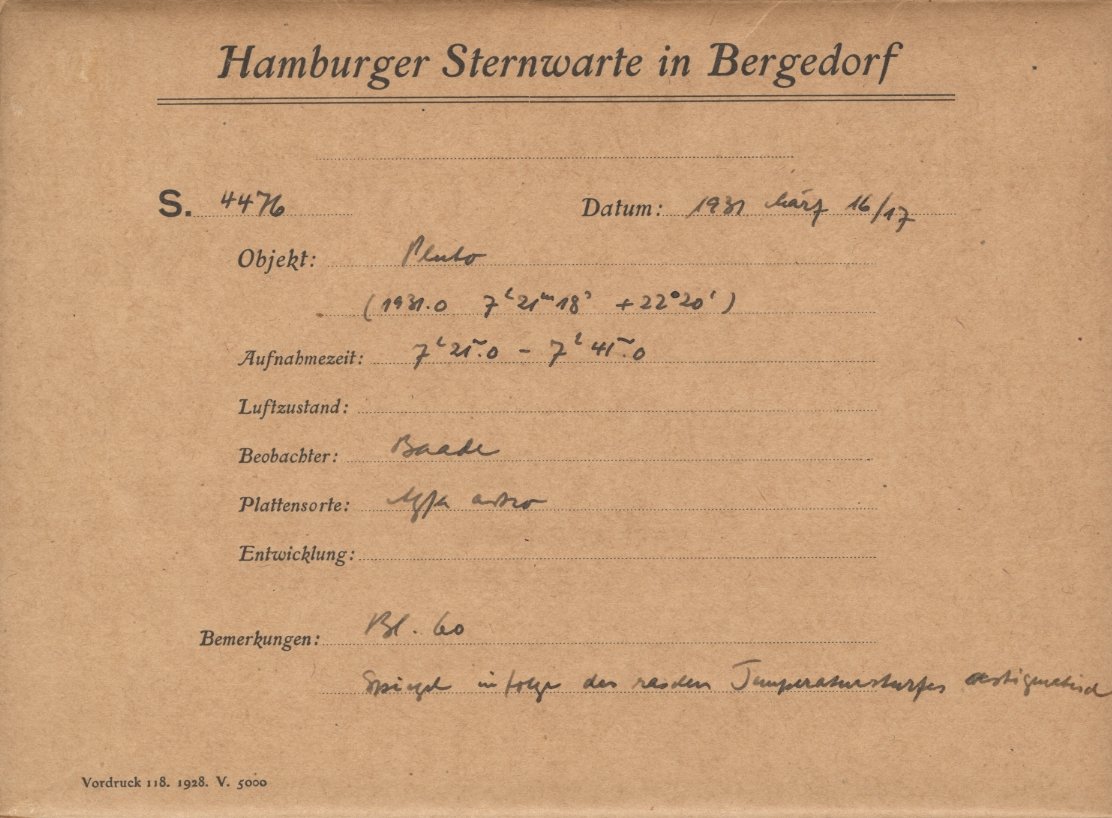 Hamburger Sternwarte in Bergedorf
S. 4476 Datum: 1931 März 16/17
Objekt: Pluto
(1931.0 7ʰ21ᵐ18ˢ +22°20')
Aufnahmezeit: 7ʰ21ᵐ.0 – 7ʰ41ᵐ.0
Luftzustand:
Beobachter: Baade
Plattensorte: Agfa astro
Entwicklung:
Bemerkungen: Bl. 60
Spiegel infolge des raschen Temperatursturzes astigmatisch
Vordruck 118. 1928. V. 5000